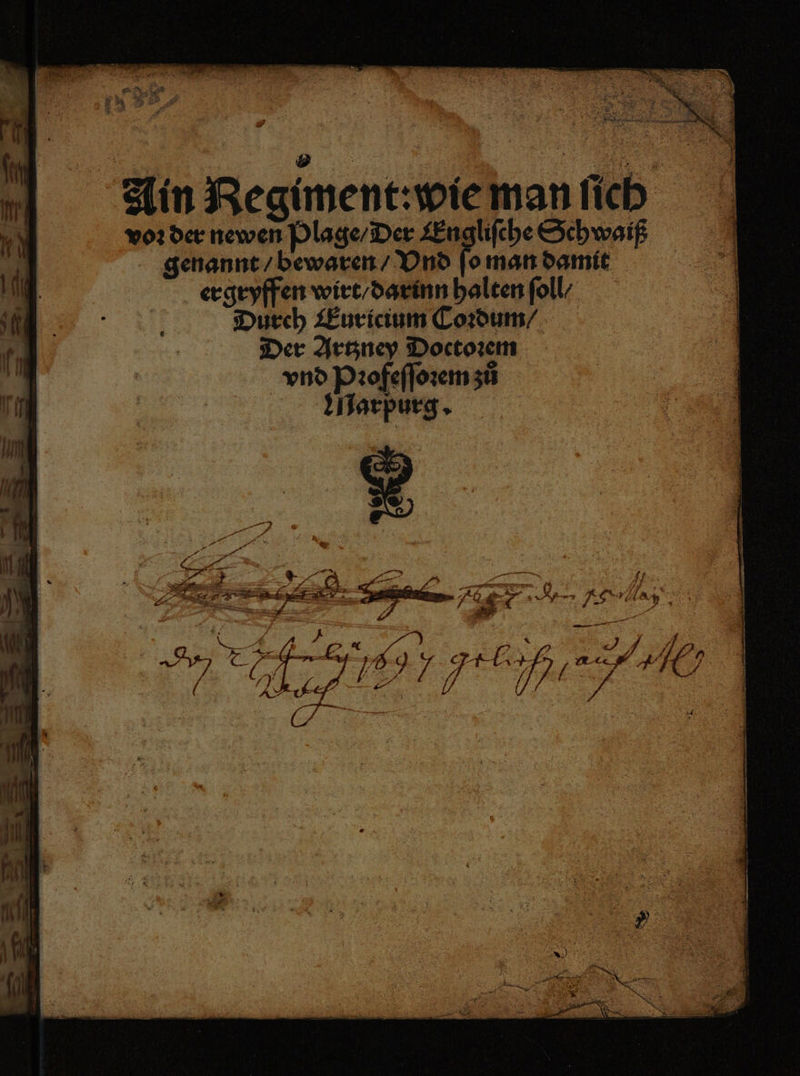 Ain Regiment: wie man ſich
voꝛ der newen Plage/ Der Engliſche Schwaiß
genannt / bewaren / Vnd ſo man damit
ergryffen wirt/ darinn halten ſoll/
Durch Euricium Coꝛdum/
Der Artzney Doctoꝛem
vnd Pꝛofeſſoꝛem zů
Marpurg.